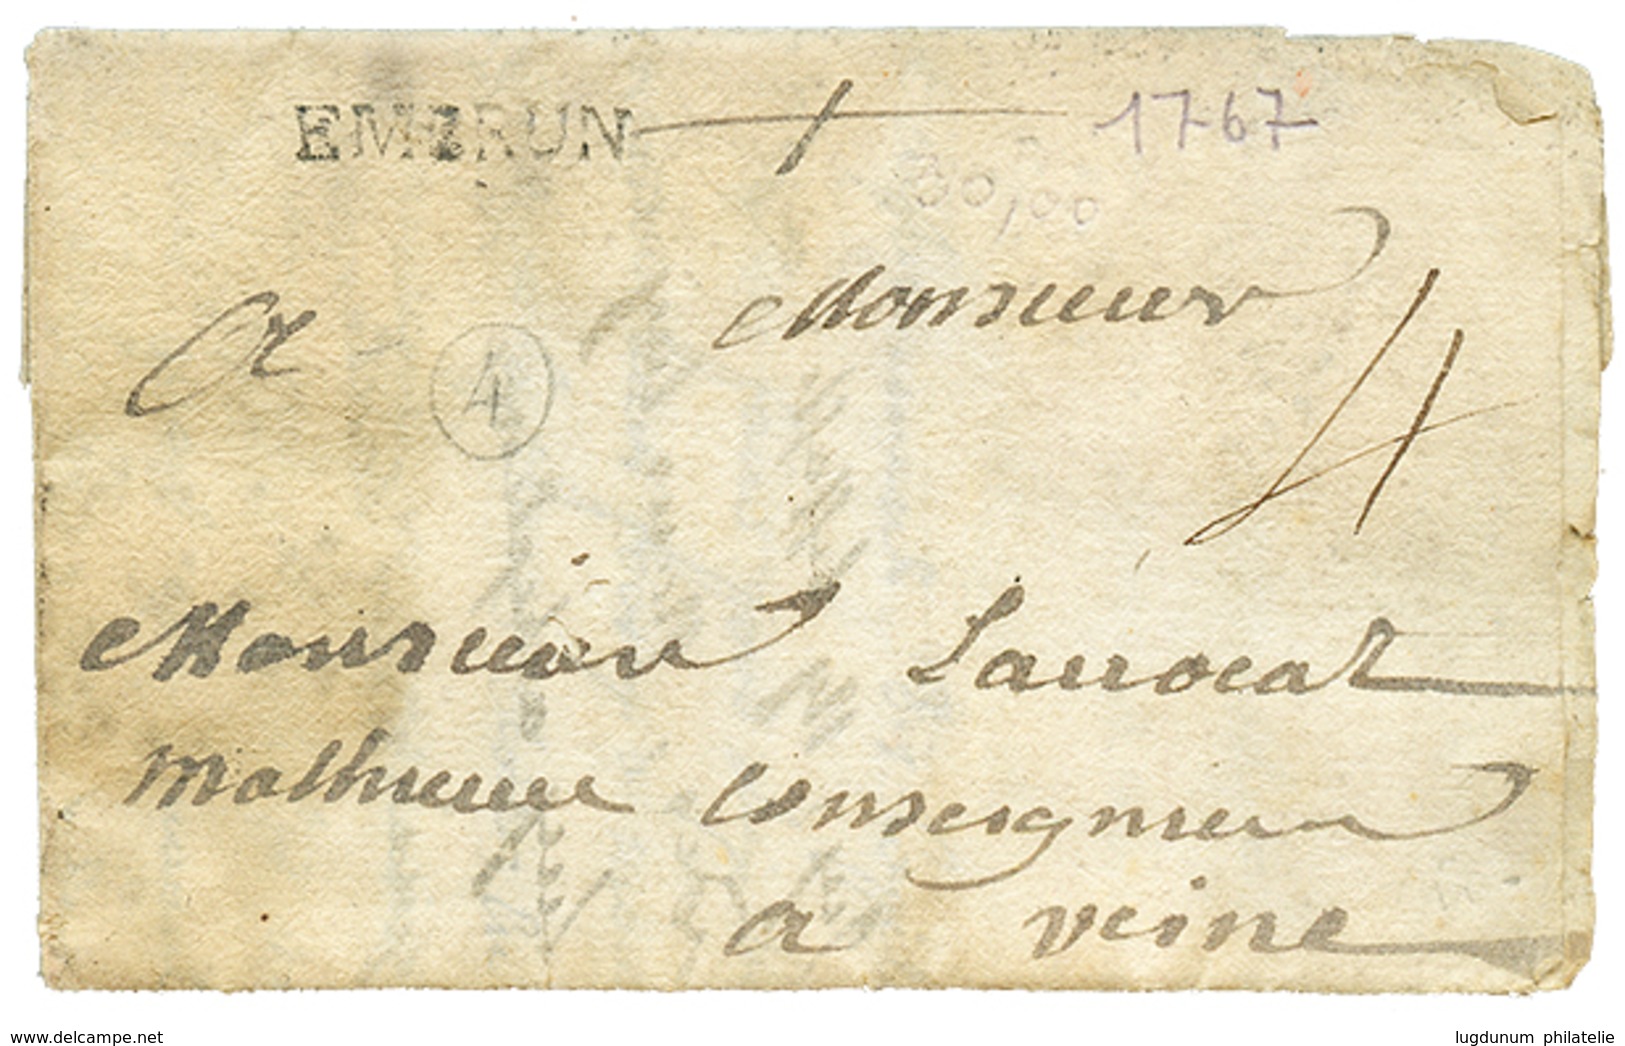 EMBRUN 1767
30,00
A Monsieur
4
4
Monsieur Lauocat
Mathieu Conseignieur
a veine
delcampe.net
lugdunum philatelie